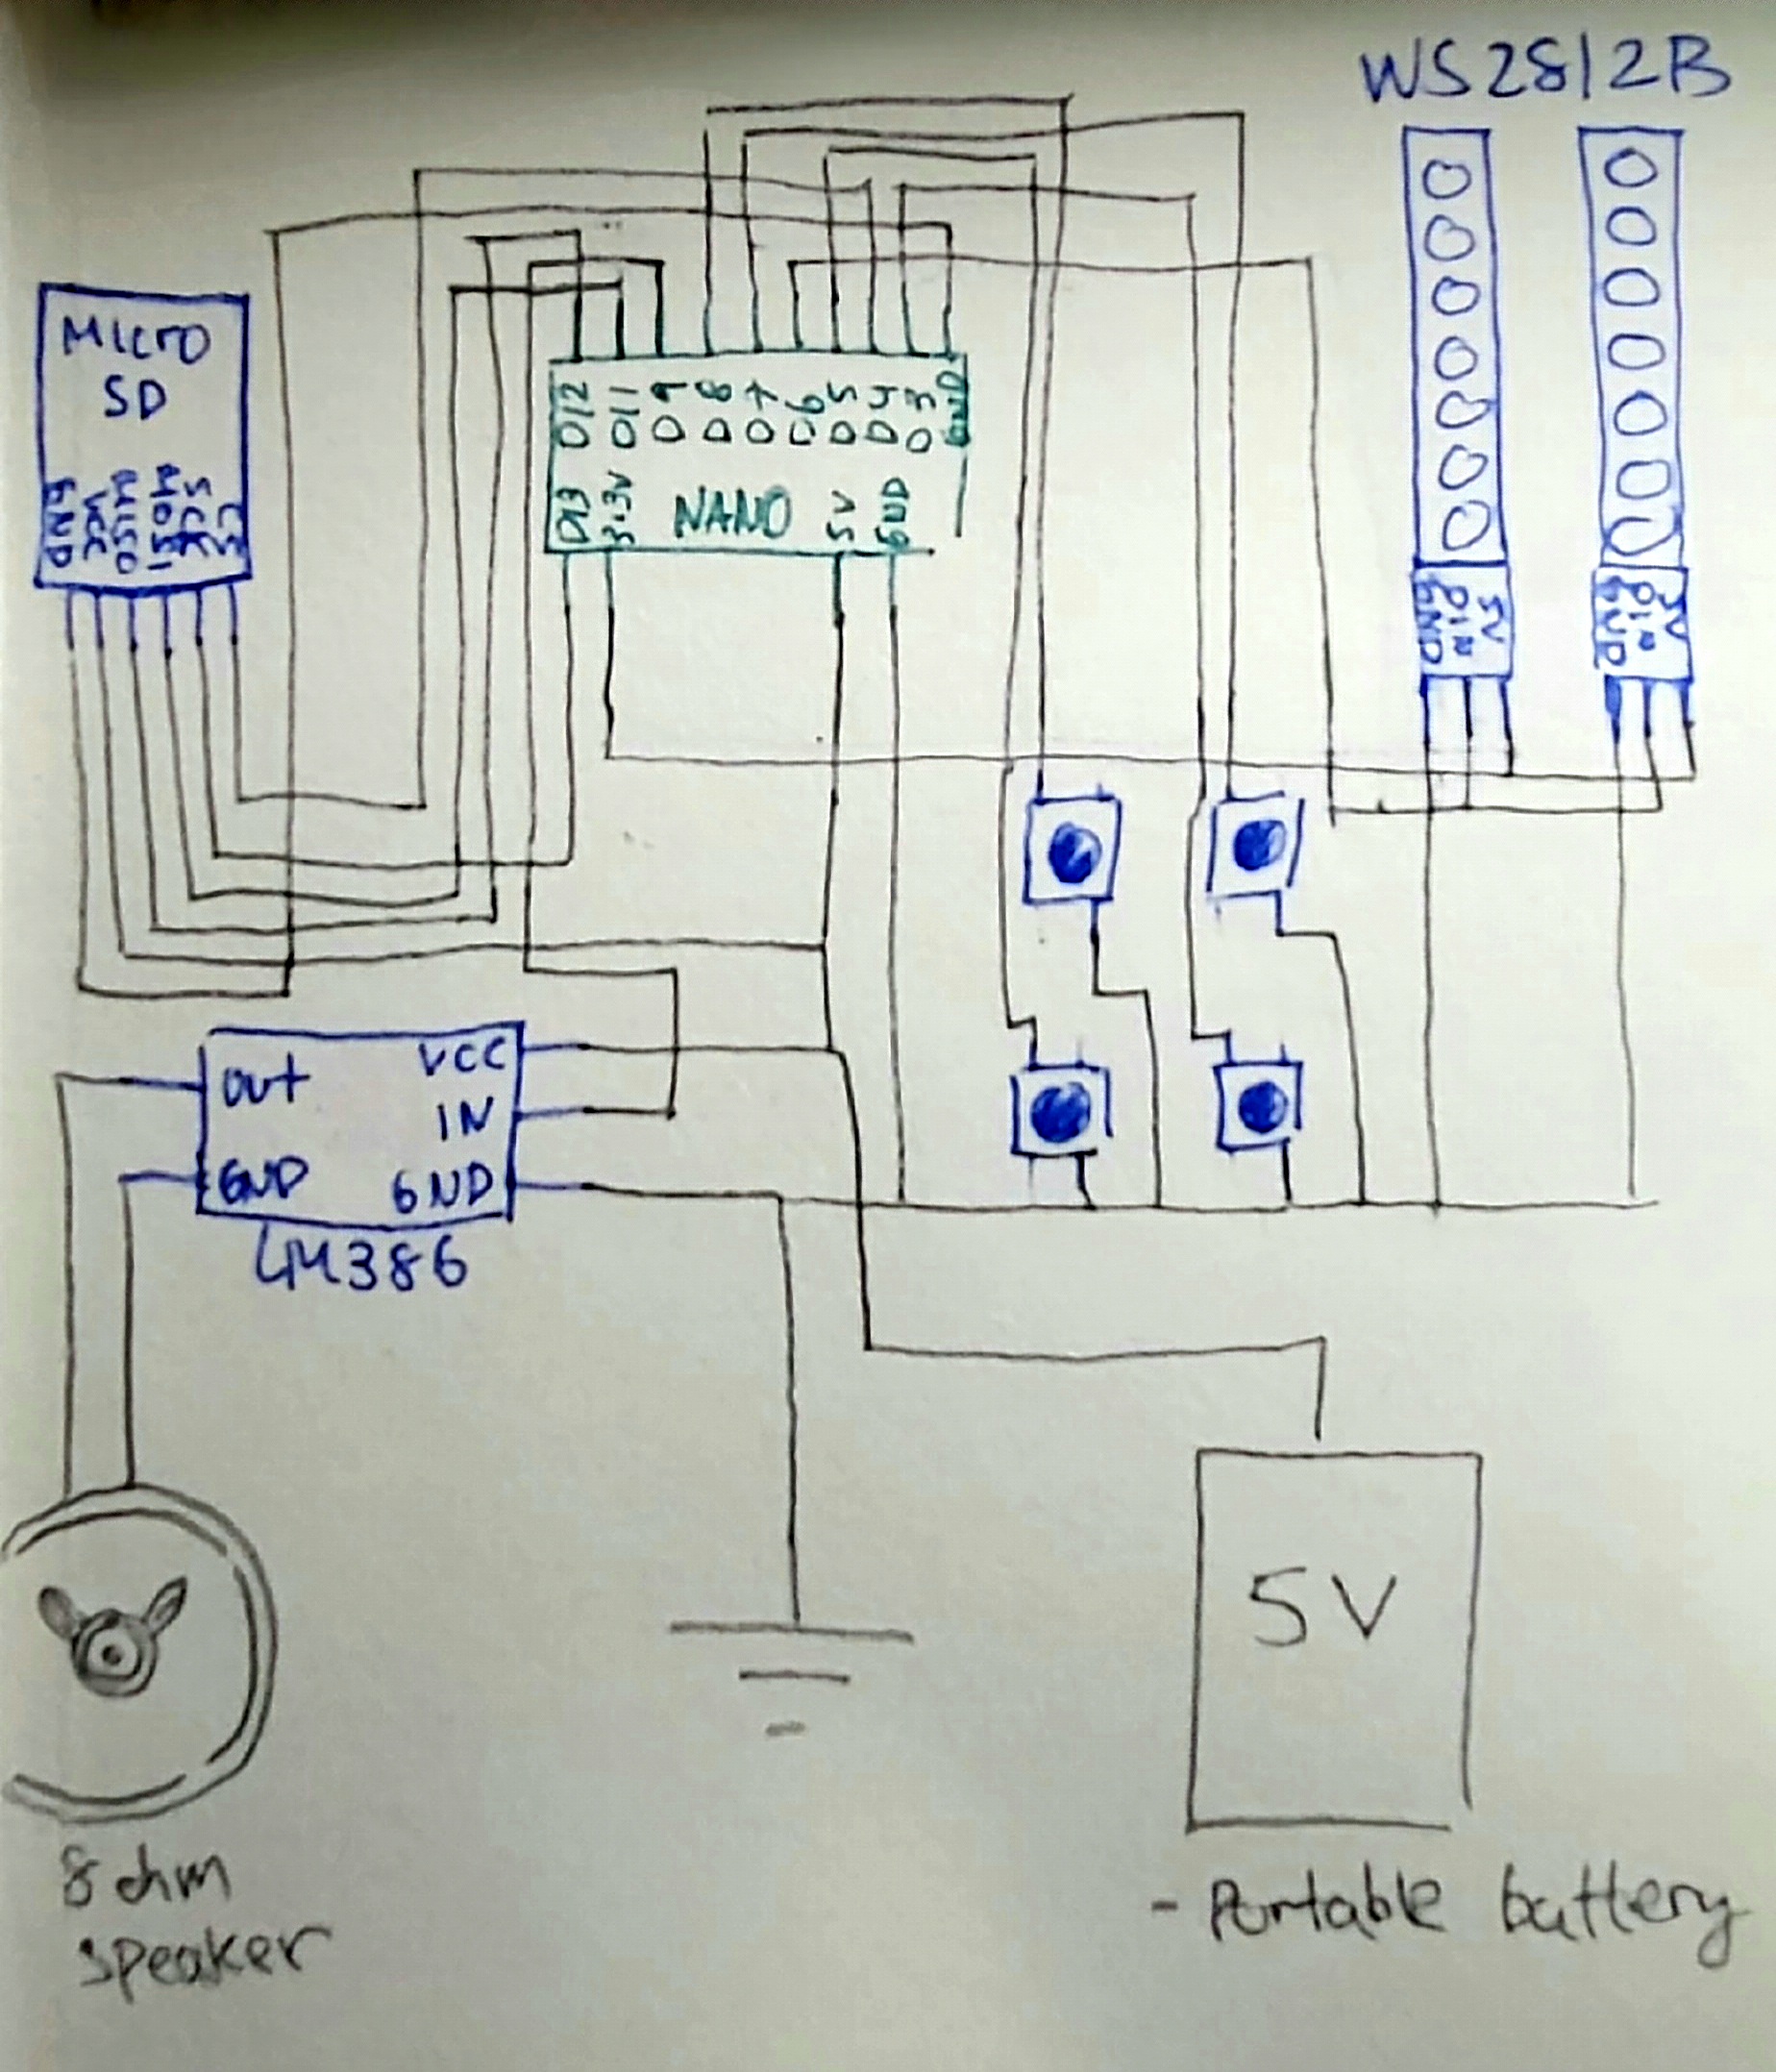 WS2812B
MICRO
SD
GND
VCC
MISO
MOSI
SCK
CS
D12
D11
D9
D8
D7
D6
D5
D4
D3
GND
D13
3.3V
NANO
5V
GND
GND
DIN
5V
GND
DIN
5V
OUT
VCC
IN
GND
GND
LM386
5V
8 ohm
speaker
- Portable battery